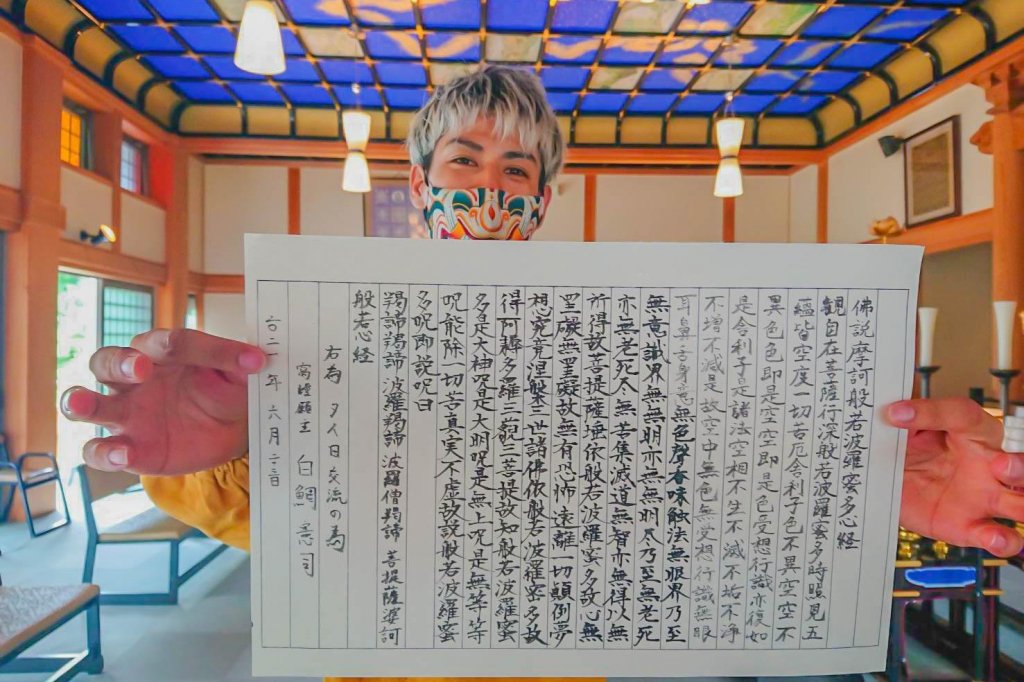 佛説摩訶般若波羅蜜多心経
観自在菩薩行深般若波羅蜜多時照見五
蘊皆空度一切苦厄舎利子色不異空空不
異色色即是空空即是色受想行識亦復如
是舎利子是諸法空相不生不滅不垢不浄
不増不減是故空中無色無受想行識無眼
耳鼻舌身意無色聲香味触法無眼界乃至
無意識界無無明亦無無明尽乃至無老死
亦無老死尽無苦集滅道無智亦無得以無
所得故菩提薩埵依般若波羅蜜多故心無
罣礙無罣礙故無有恐怖遠離一切顛倒夢
想究竟涅槃三世諸佛依般若波羅蜜多故
得阿耨多羅三藐三菩提故知般若波羅蜜
多是大神呪是大明呪是無上呪是無等等
呪能除一切苦真実不虚故説般若波羅蜜
多呪即説呪曰
羯諦羯諦 波羅羯諦 波羅僧羯諦 菩提薩婆訶
般若心経
右為 タイ日交流の為
写経願主 白鯛 意司
二〇二一年 六月 二三日